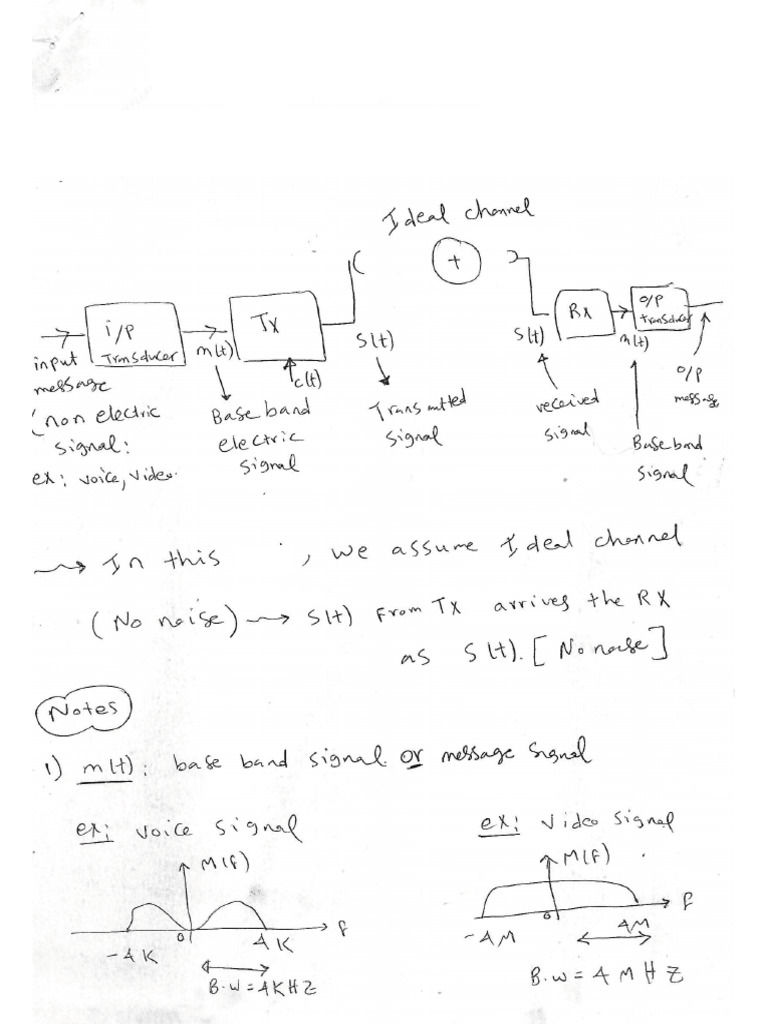 Ideal channel
+
i/P
Transducer
Tx
Rx
O/P
transducer
m(t)
c(t)
S(t)
S(t)
m(t)
input
message
(non electric
signal:
ex: voice, video.
Base band
electric
signal
Transmitted
signal
received
signal
Base band
signal
O/P
message
In this , we assume Ideal channel
(No noise) S(t) From TX arrives the RX
as S(t). [No noise]
Notes
1) m(t): base band signal or message signal
ex: voice signal
M(f)
-4K
0
4K
f
B.W=4KHZ
ex: video signal
M(f)
-4M
0
4M
f
B.W=4MHZ